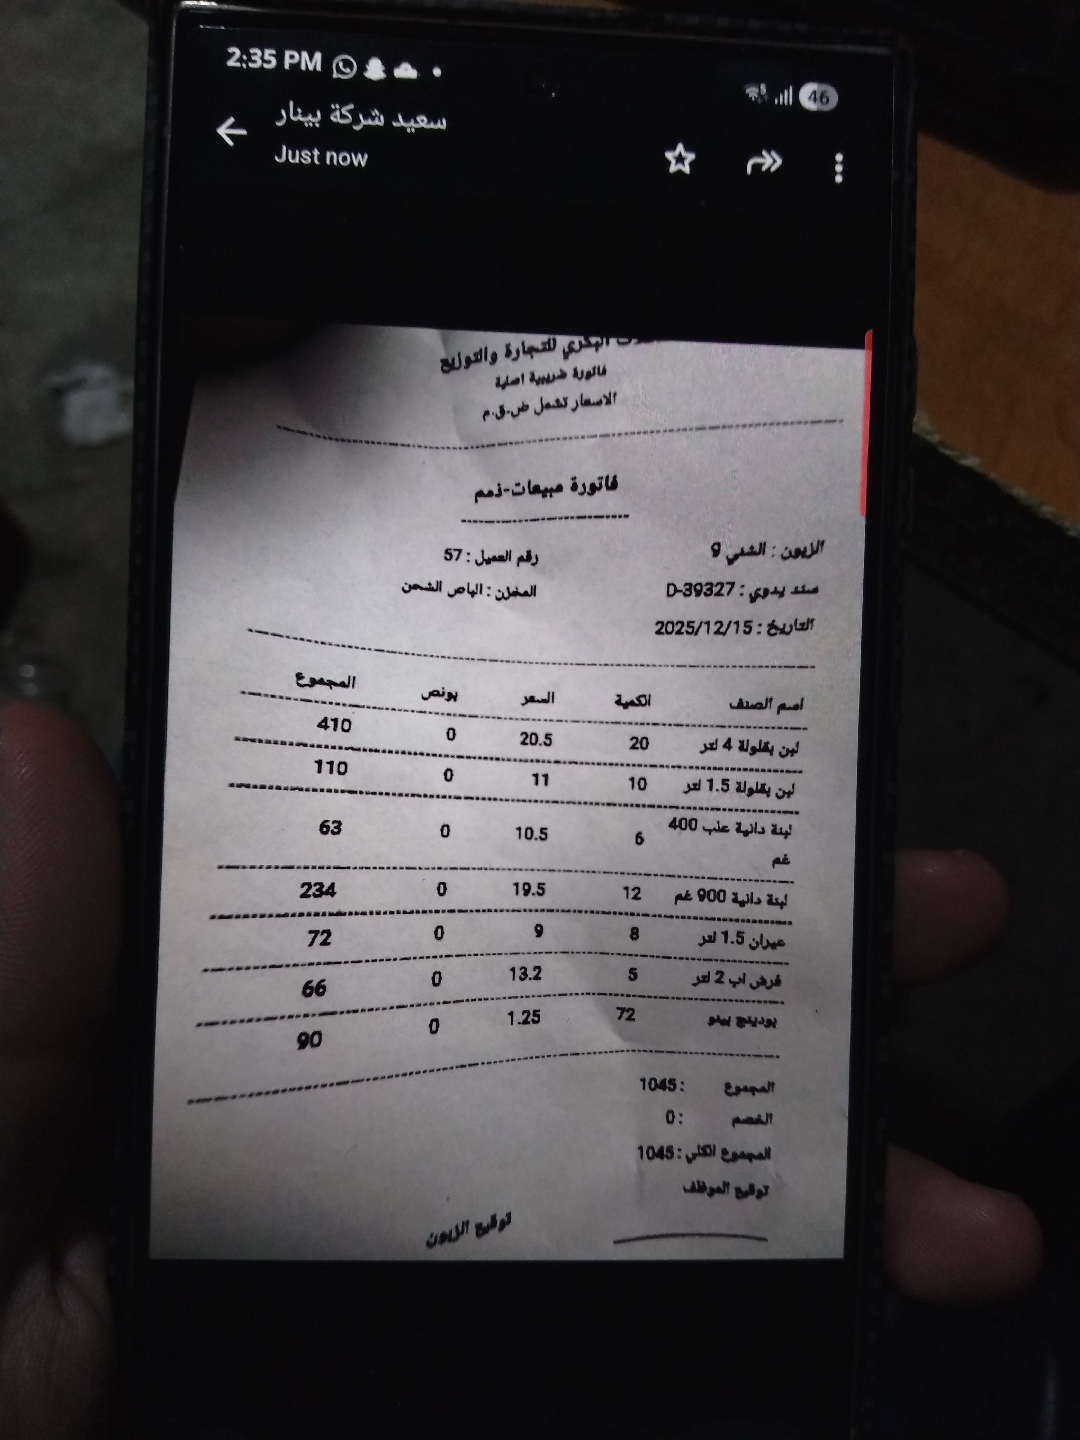 2:35 PM
46
سعيد شركة بينار
Just now
البكري للتجارة والتوزيع
فاتورة ضريبية اصلية
الاسعار تشمل ض.ق.م
فاتورة مبيعات-ذمم
الزبون : الشني 9 رقم العميل : 57
سند يدوي : D-39327 المخزن : الباص الشحن
التاريخ : 2025/12/15
اسم الصنف الكمية السعر بونص المجموع
لبن بقلولة 4 لتر 20 20.5 0 410
لبن بقلولة 1.5 لتر 10 11 0 110
لبنة دانية علب 400 6 10.5 0 63
غم
لبنة دانية 900 غم 12 19.5 0 234
عيران 1.5 لتر 8 9 0 72
فرش اب 2 لتر 5 13.2 0 66
بودينج بينو 72 1.25 0 90
المجموع : 1045
الخصم : 0
المجموع الكلي : 1045
توقيع الموظف
توقيع الزبون